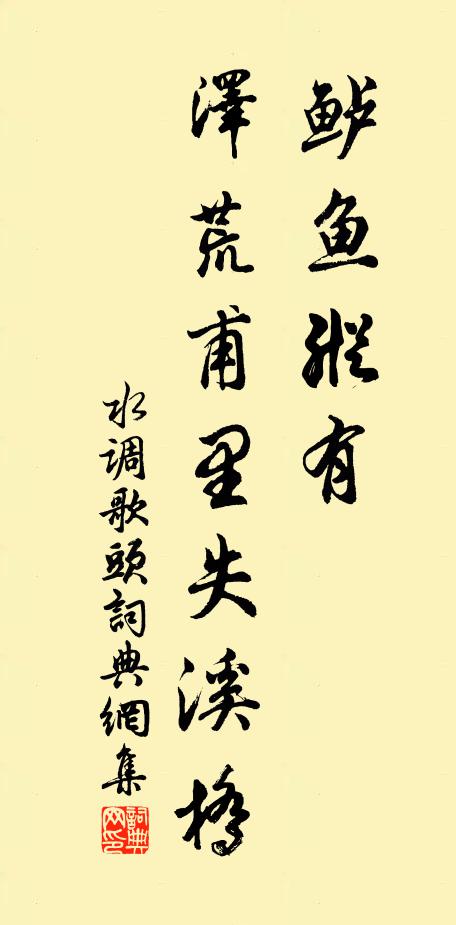 鲈鱼縱有
澤荒甫里失溪橋
水调歌頭詞典網集
詞典网印